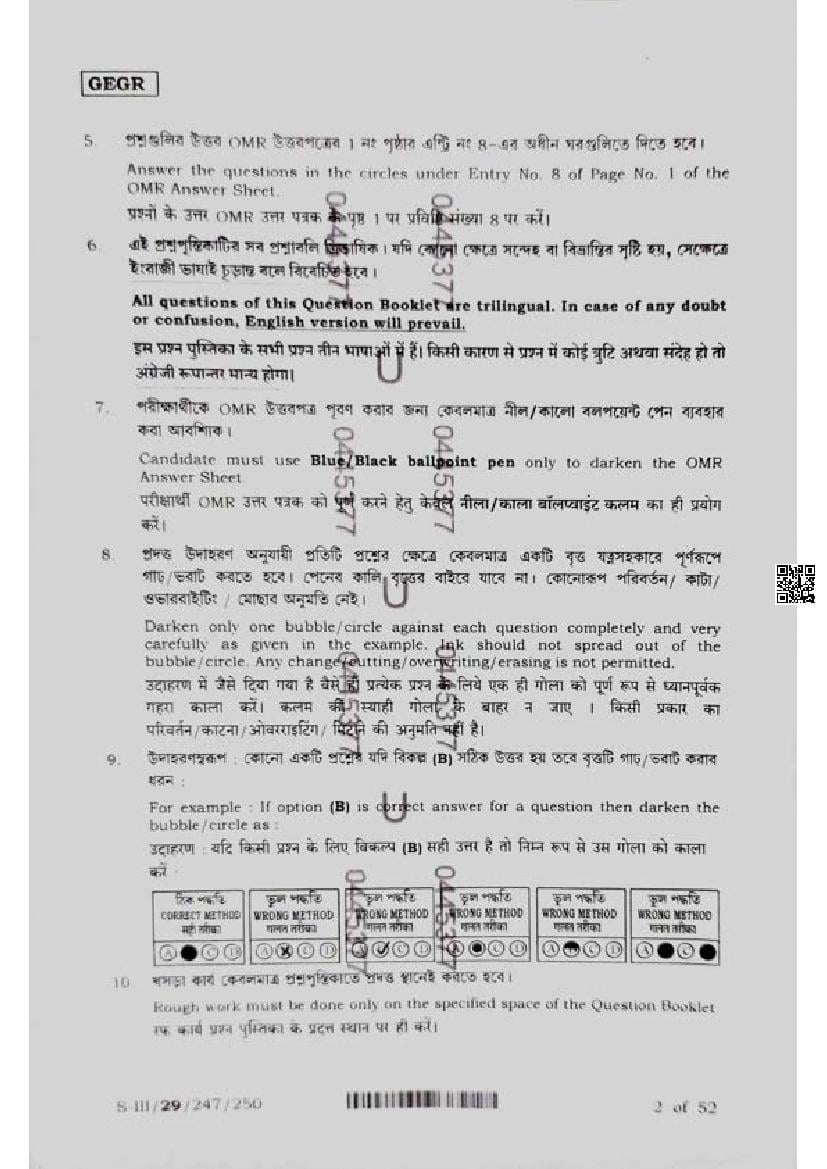 GEGR
5. প্রশ্নগুলির উত্তর OMR উত্তরপত্রের 1 নং পৃষ্ঠার এন্ট্রি নং 8-এর অধীন ঘরগুলিতে দিতে হবে।
Answer the questions in the circles under Entry No. 8 of Page No. 1 of the
OMR Answer Sheet.
प्रश्नों के उत्तर OMR उत्तर पत्रक के पृष्ठ 1 पर प्रविष्टि संख्या 8 पर करें।
6. এই প্রশ্নপুস্তিকাটির সব প্রশ্নাবলি ত্রিভাষিক। যদি কোনো ক্ষেত্রে সন্দেহ বা বিভ্রান্তির সৃষ্টি হয়, সেক্ষেত্রে
ইংরাজী ভাষাই চূড়ান্ত বলে বিবেচিত হবে।
All questions of this Question Booklet are trilingual. In case of any doubt
or confusion, English version will prevail.
इस प्रश्न पुस्तिका के सभी प्रश्न तीन भाषाओं में हैं। किसी कारण से प्रश्न में कोई त्रुटि अथवा संदेह हो तो
अंग्रेजी रूपान्तर मान्य होगा।
7. পরীক্ষার্থীকে OMR উত্তরপত্র পূরণ করার জন্য কেবলমাত্র নীল/কালো বলপয়েন্ট পেন ব্যবহার
করা আবশ্যিক।
Candidate must use Blue/Black ballpoint pen only to darken the OMR
Answer Sheet
परीक्षार्थी OMR उत्तर पत्रक को पूर्ण करने हेतु केवल नीला/काला बॉलप्वाइंट कलम का ही प्रयोग
करें।
8. প্রদত্ত উদাহরণ অনুযায়ী প্রতিটি প্রশ্নের ক্ষেত্রে কেবলমাত্র একটি বৃত্ত যত্নসহকারে পূর্ণরূপে
গাঢ়/ভরাট করতে হবে। পেনের কালি বৃত্তের বাইরে যাবে না। কোনোরূপ পরিবর্তন/ কাটা/
ওভাররাইটিং / মোছার অনুমতি নেই।
Darken only one bubble/circle against each question completely and very
carefully as given in the example. Ink should not spread out of the
bubble/circle. Any change/cutting/overwriting/erasing is not permitted.
उदाहरण में जैसे दिया गया है वैसे ही प्रत्येक प्रश्न के लिये एक ही गोला को पूर्ण रूप से ध्यानपूर्वक
गहरा काला करें। कलम की स्याही गोला के बाहर न जाए । किसी प्रकार का
परिवर्तन/काटना/ओवरराइटिंग/ मिटाने की अनुमति नहीं है।
9. উদাহরণস্বরূপ : কোনো একটি প্রশ্নের যদি বিকল্প (B) সঠিক উত্তর হয় তবে বৃত্তটি গাঢ়/ভরাট করার
ধরন :
For example : If option (B) is correct answer for a question then darken the
bubble/circle as :
उदाहरण : यदि किसी प्रश्न के लिए विकल्प (B) सही उत्तर है तो निम्न रूप से उस गोला को काला
करें
ঠিক পদ্ধতি ভুল পদ্ধতি ভুল পদ্ধতি ভুল পদ্ধতি ভুল পদ্ধতি ভুল পদ্ধতি
CORRECT METHOD WRONG METHOD WRONG METHOD WRONG METHOD WRONG METHOD WRONG METHOD
सही तरीका गलत तरीका गलत तरीका गलत तरीका गलत तरीका गलत तरीका
A C D A C D A C D A C D A C D A C
10 খসড়া কার্য কেবলমাত্র প্রশ্নপুস্তিকাতে প্রদত্ত স্থানেই করতে হবে।
Rough work must be done only on the specified space of the Question Booklet
रफ कार्य प्रश्न पुस्तिका के प्रदत्त स्थान पर ही करें।
0445377
0445377
U
0445377
0445377
U
0445377
0445377
U
0445377
0445377
S-III/29/247/250
2 of 52